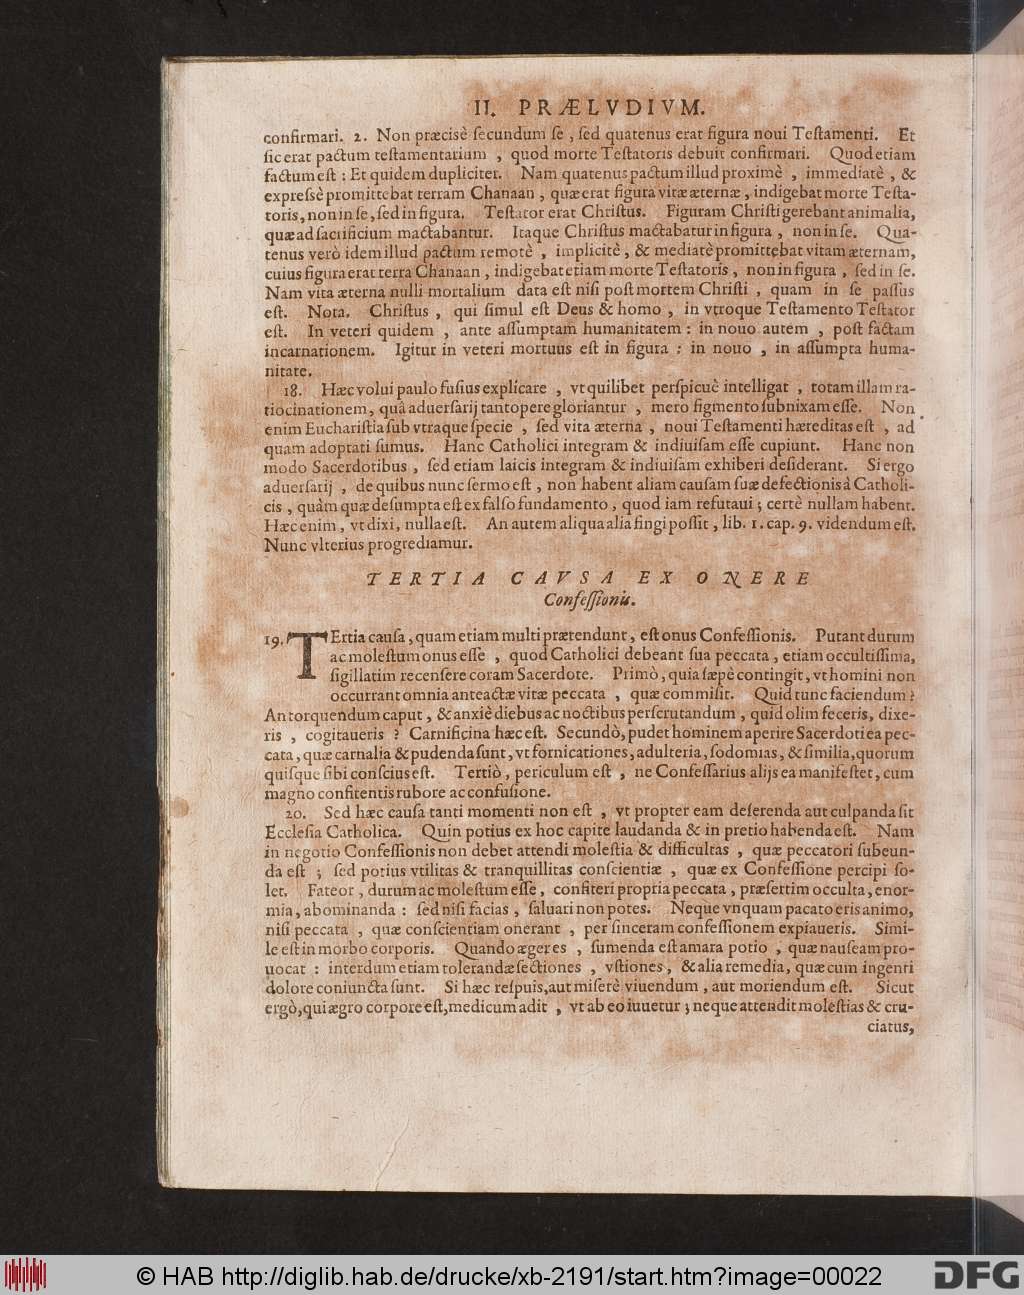 II. PRÆLVDIVM.
confirmari. 2. Non præcisè ſecundum ſe, ſed quatenus erat figura noui Teſtamenti. Et
ſic erat pactum teſtamentarium, quod morte Teſtatoris debuit confirmari. Quod etiam
factum eſt: Et quidem dupliciter. Nam quatenus pactum illud proximè, immediatè, &
expreſsè promittebat terram Chanaan, quæ erat figura vitæ æternæ, indigebat morte Teſta-
toris, non in ſe, ſed in figura. Teſtator erat Chriſtus. Figuram Chriſti gerebant animalia,
quæ ad ſacrificium mactabantur. Itaque Chriſtus mactabatur in figura, non in ſe. Qua-
tenus verò idem illud pactum remotè, implicitè, & mediatè promittebat vitam æternam,
cuius figura erat terra Chanaan, indigebat etiam morte Teſtatoris, non in figura, ſed in ſe.
Nam vita æterna nulli mortalium data eſt niſi poſt mortem Chriſti, quam in ſe paſſus
eſt. Nota. Chriſtus, qui ſimul eſt Deus & homo, in vtroque Teſtamento Teſtator
eſt. In veteri quidem, ante aſſumptam humanitatem: in nouo autem, poſt factam
incarnationem. Igitur in veteri mortuus eſt in figura: in nouo, in aſſumpta huma-
nitate.
18. Hæc volui paulo fuſius explicare, vt quilibet perſpicuè intelligat, totam illam ra-
tiocinationem, quâ aduerſarij tantopere gloriantur, mero figmento ſubnixam eſſe. Non
enim Euchariſtia ſub vtraque ſpecie, ſed vita æterna, noui Teſtamenti hæreditas eſt, ad
quam adoptati ſumus. Hanc Catholici integram & indiuiſam eſſe cupiunt. Hanc non
modo Sacerdotibus, ſed etiam laicis integram & indiuiſam exhiberi deſiderant. Si ergo
aduerſarij, de quibus nunc ſermo eſt, non habent aliam cauſam ſuæ defectionis à Catholi-
cis, quàm quæ deſumpta eſt ex falſo fundamento, quod iam refutaui; certè nullam habent.
Hæc enim, vt dixi, nulla eſt. An autem aliqua alia fingi poſſit, lib. 1. cap. 9. videndum eſt.
Nunc vlterius progrediamur.
TERTIA CAVSA EX ONERE
Confeſſionis.
19. TErtia cauſa, quam etiam multi prætendunt, eſt onus Confeſſionis. Putant durum
ac moleſtum onus eſſe, quod Catholici debeant ſua peccata, etiam occultiſſima,
ſigillatim recenſere coram Sacerdote. Primò, quia ſæpè contingit, vt homini non
occurrant omnia anteactæ vitæ peccata, quæ commiſit. Quid tunc faciendum?
An torquendum caput, & anxiè diebus ac noctibus perſcrutandum, quid olim feceris, dixe-
ris, cogitaueris? Carnificina hæc eſt. Secundò, pudet hominem aperire Sacerdoti ea pec-
cata, quæ carnalia & pudenda ſunt, vt fornicationes, adulteria, ſodomias, & ſimilia, quorum
quiſque ſibi conſcius eſt. Tertiò, periculum eſt, ne Confeſſarius alijs ea manifeſtet, cum
magno confitentis rubore ac confuſione.
20. Sed hæc cauſa tanti momenti non eſt, vt propter eam deſerenda aut culpanda ſit
Eccleſia Catholica. Quin potius ex hoc capite laudanda & in pretio habenda eſt. Nam
in negotio Confeſſionis non debet attendi moleſtia & difficultas, quæ peccatori ſubeun-
da eſt; ſed potius vtilitas & tranquillitas conſcientiæ, quæ ex Confeſſione percipi ſo-
let. Fateor, durum ac moleſtum eſſe, confiteri propria peccata, præſertim occulta, enor-
mia, abominanda: ſed niſi facias, ſaluari non potes. Neque vnquam pacato eris animo,
niſi peccata, quæ conſcientiam onerant, per ſinceram confeſſionem expiaueris. Simi-
le eſt in morbo corporis. Quando æger es, ſumenda eſt amara potio, quæ nauſeam pro-
uocat: interdum etiam tolerandæ ſectiones, vſtiones, & alia remedia, quæ cum ingenti
dolore coniuncta ſunt. Si hæc reſpuis, aut miſerè viuendum, aut moriendum eſt. Sicut
ergò, qui ægro corpore eſt, medicum adit, vt ab eo iuuetur; neque attendit moleſtias & cru-
ciatus,
© HAB http://diglib.hab.de/drucke/xb-2191/start.htm?image=00022
DFG